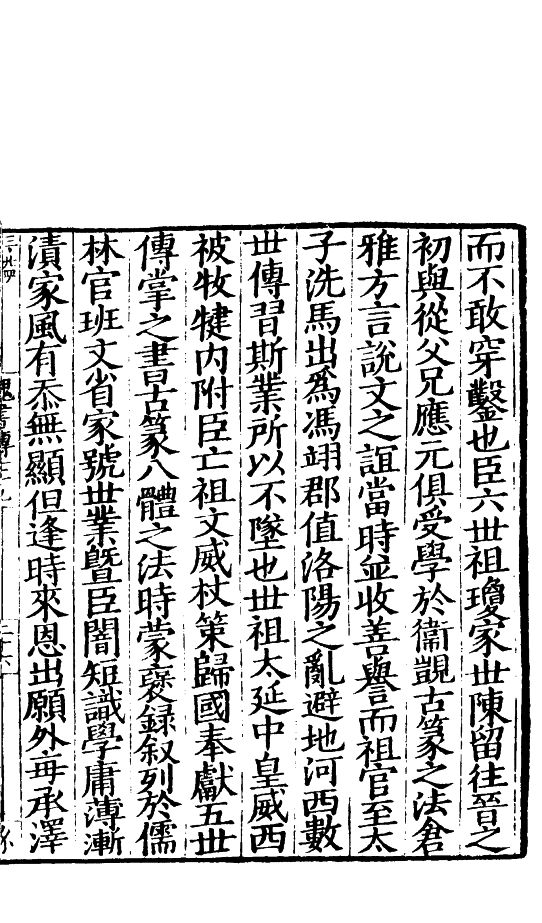 而不敢穿鑿也臣六世祖瓊家世陳留往晉之
初與從父兄應元俱受學於衞覬古篆之法倉
雅方言說文之誼當時並收善譽而祖官至太
子洗馬出爲馮翊郡值洛陽之亂避地河西數
世傳習斯業所以不墜也世祖太延中皇威西
被牧犍內附臣亡祖文威杖策歸國奉獻五世
傳掌之書古篆八體之法時蒙褒錄叙列於儒
林官班文省家號世業曁臣闇短識學庸薄漸
漬家風有忝無顯但逢時來恩出願外每承澤